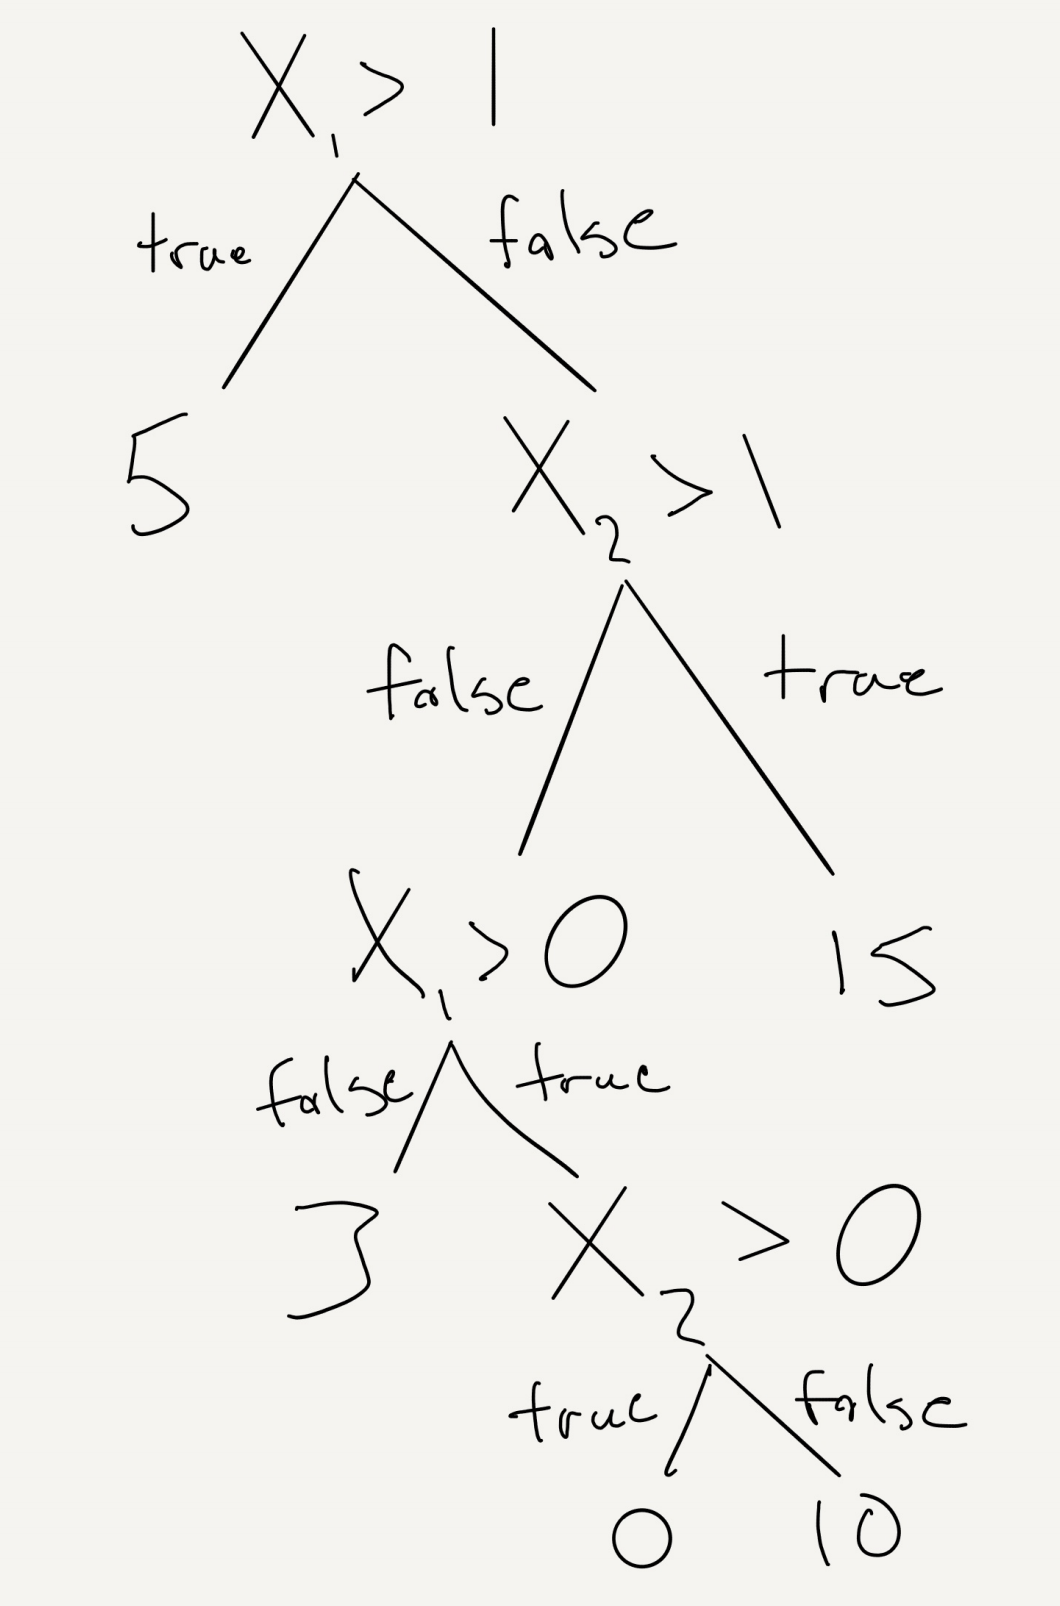 X₁ > 1
true false
5 X₂ > 1
false true
X₁ > 0 15
false true
3 X₂ > 0
true false
0 10